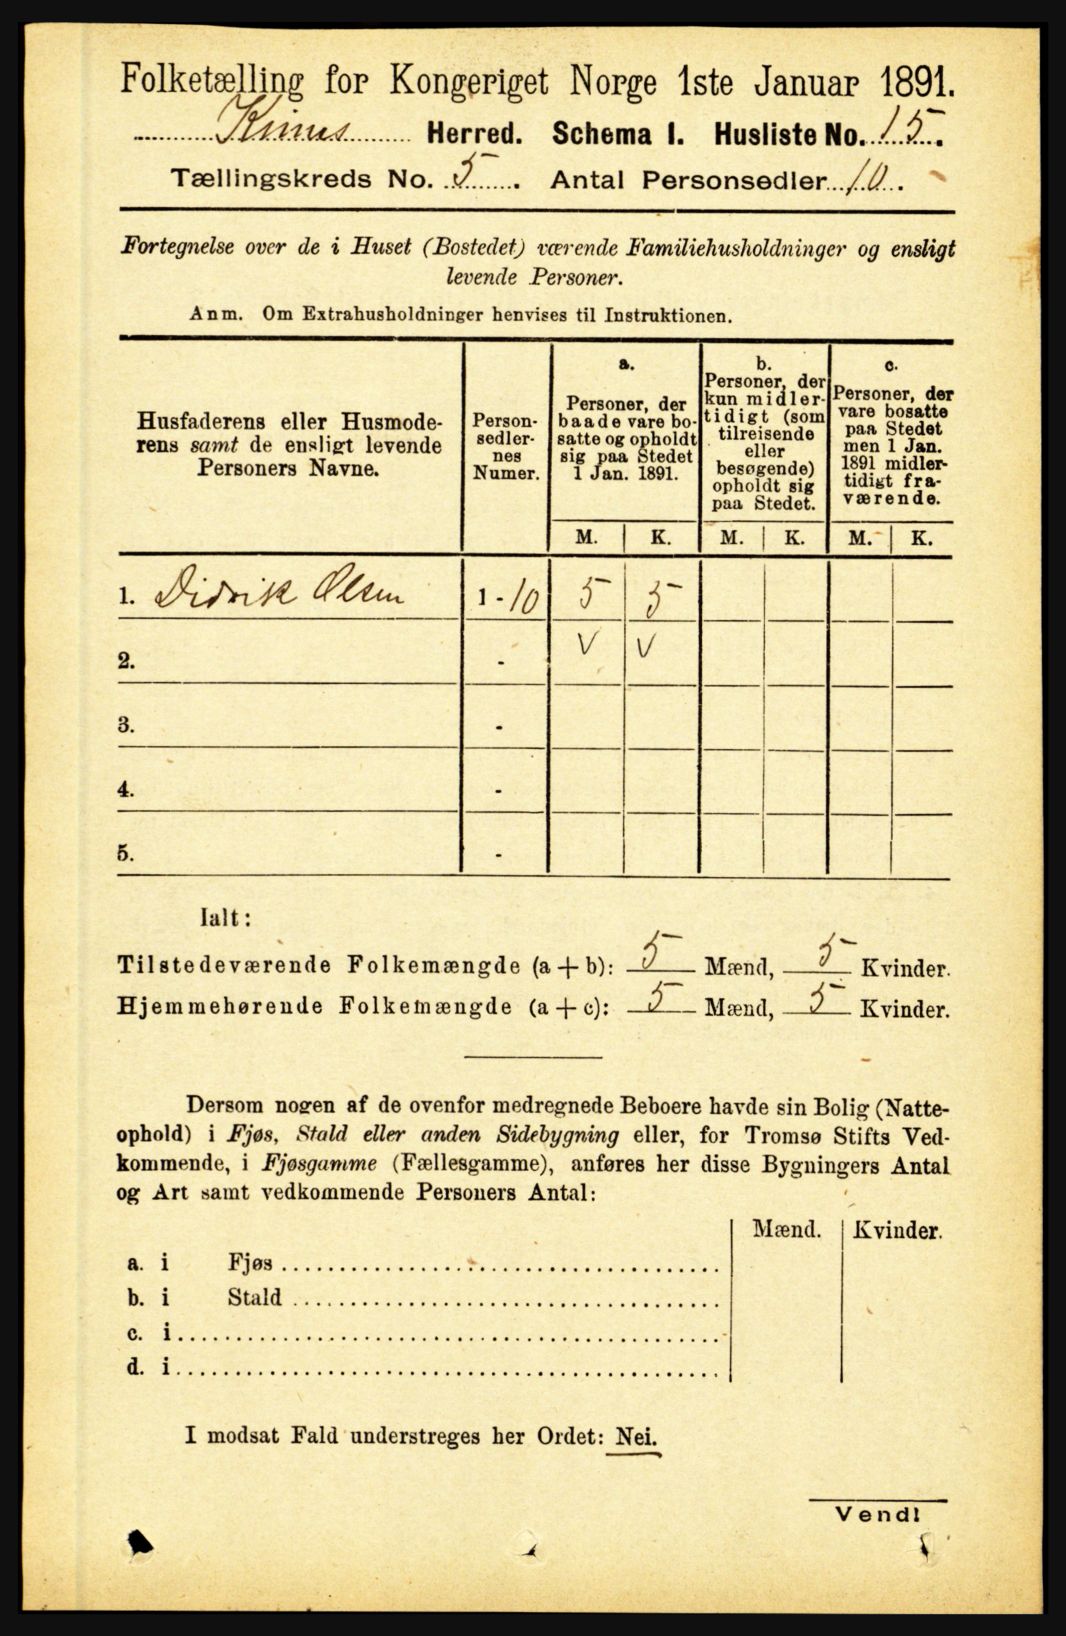 Folketælling for Kongeriget Norge 1ste Januar 1891.
Kinns Herred. Schema I. Husliste No. 15.
Tællingskreds No. 5. Antal Personsedler 10.
Fortegnelse over de i Huset (Bostedet) værende Familiehusholdninger og ensligt
levende Personer.
Anm. Om Extrahusholdninger henvises til Instruktionen.
Husfaderens eller Husmode-
rens samt de ensligt levende
Personers Navne.
Person-
sedler-
nes
Numer.
a.
Personer, der
baade vare bo-
satte og opholdt
sig paa Stedet
1 Jan. 1891.
b.
Personer, der
kun midler-
tidigt (som
tilreisende
eller
besøgende)
opholdt sig
paa Stedet.
c.
Personer, der
vare bosatte
paa Stedet
men 1 Jan.
1891 midler-
tidigt fra-
værende.
M. K. M. K. M. K.
1. Didrik Olsen 1 - 10 5 5
2. - V V
3. -
4. -
5. -
Ialt:
Tilstedeværende Folkemængde (a + b): 5 Mænd, 5 Kvinder.
Hjemmehørende Folkemængde (a + c): 5 Mænd, 5 Kvinder.
Dersom nogen af de ovenfor medregnede Beboere havde sin Bolig (Natte-
ophold) i Fjøs, Stald eller anden Sidebygning eller, for Tromsø Stifts Ved-
kommende, i Fjøsgamme (Fællesgamme), anføres her disse Bygningers Antal
og Art samt vedkommende Personers Antal:
Mænd. Kvinder.
a. i Fjøs
b. i Stald
c. i
d. i
I modsat Fald understreges her Ordet: Nei.
Vend!